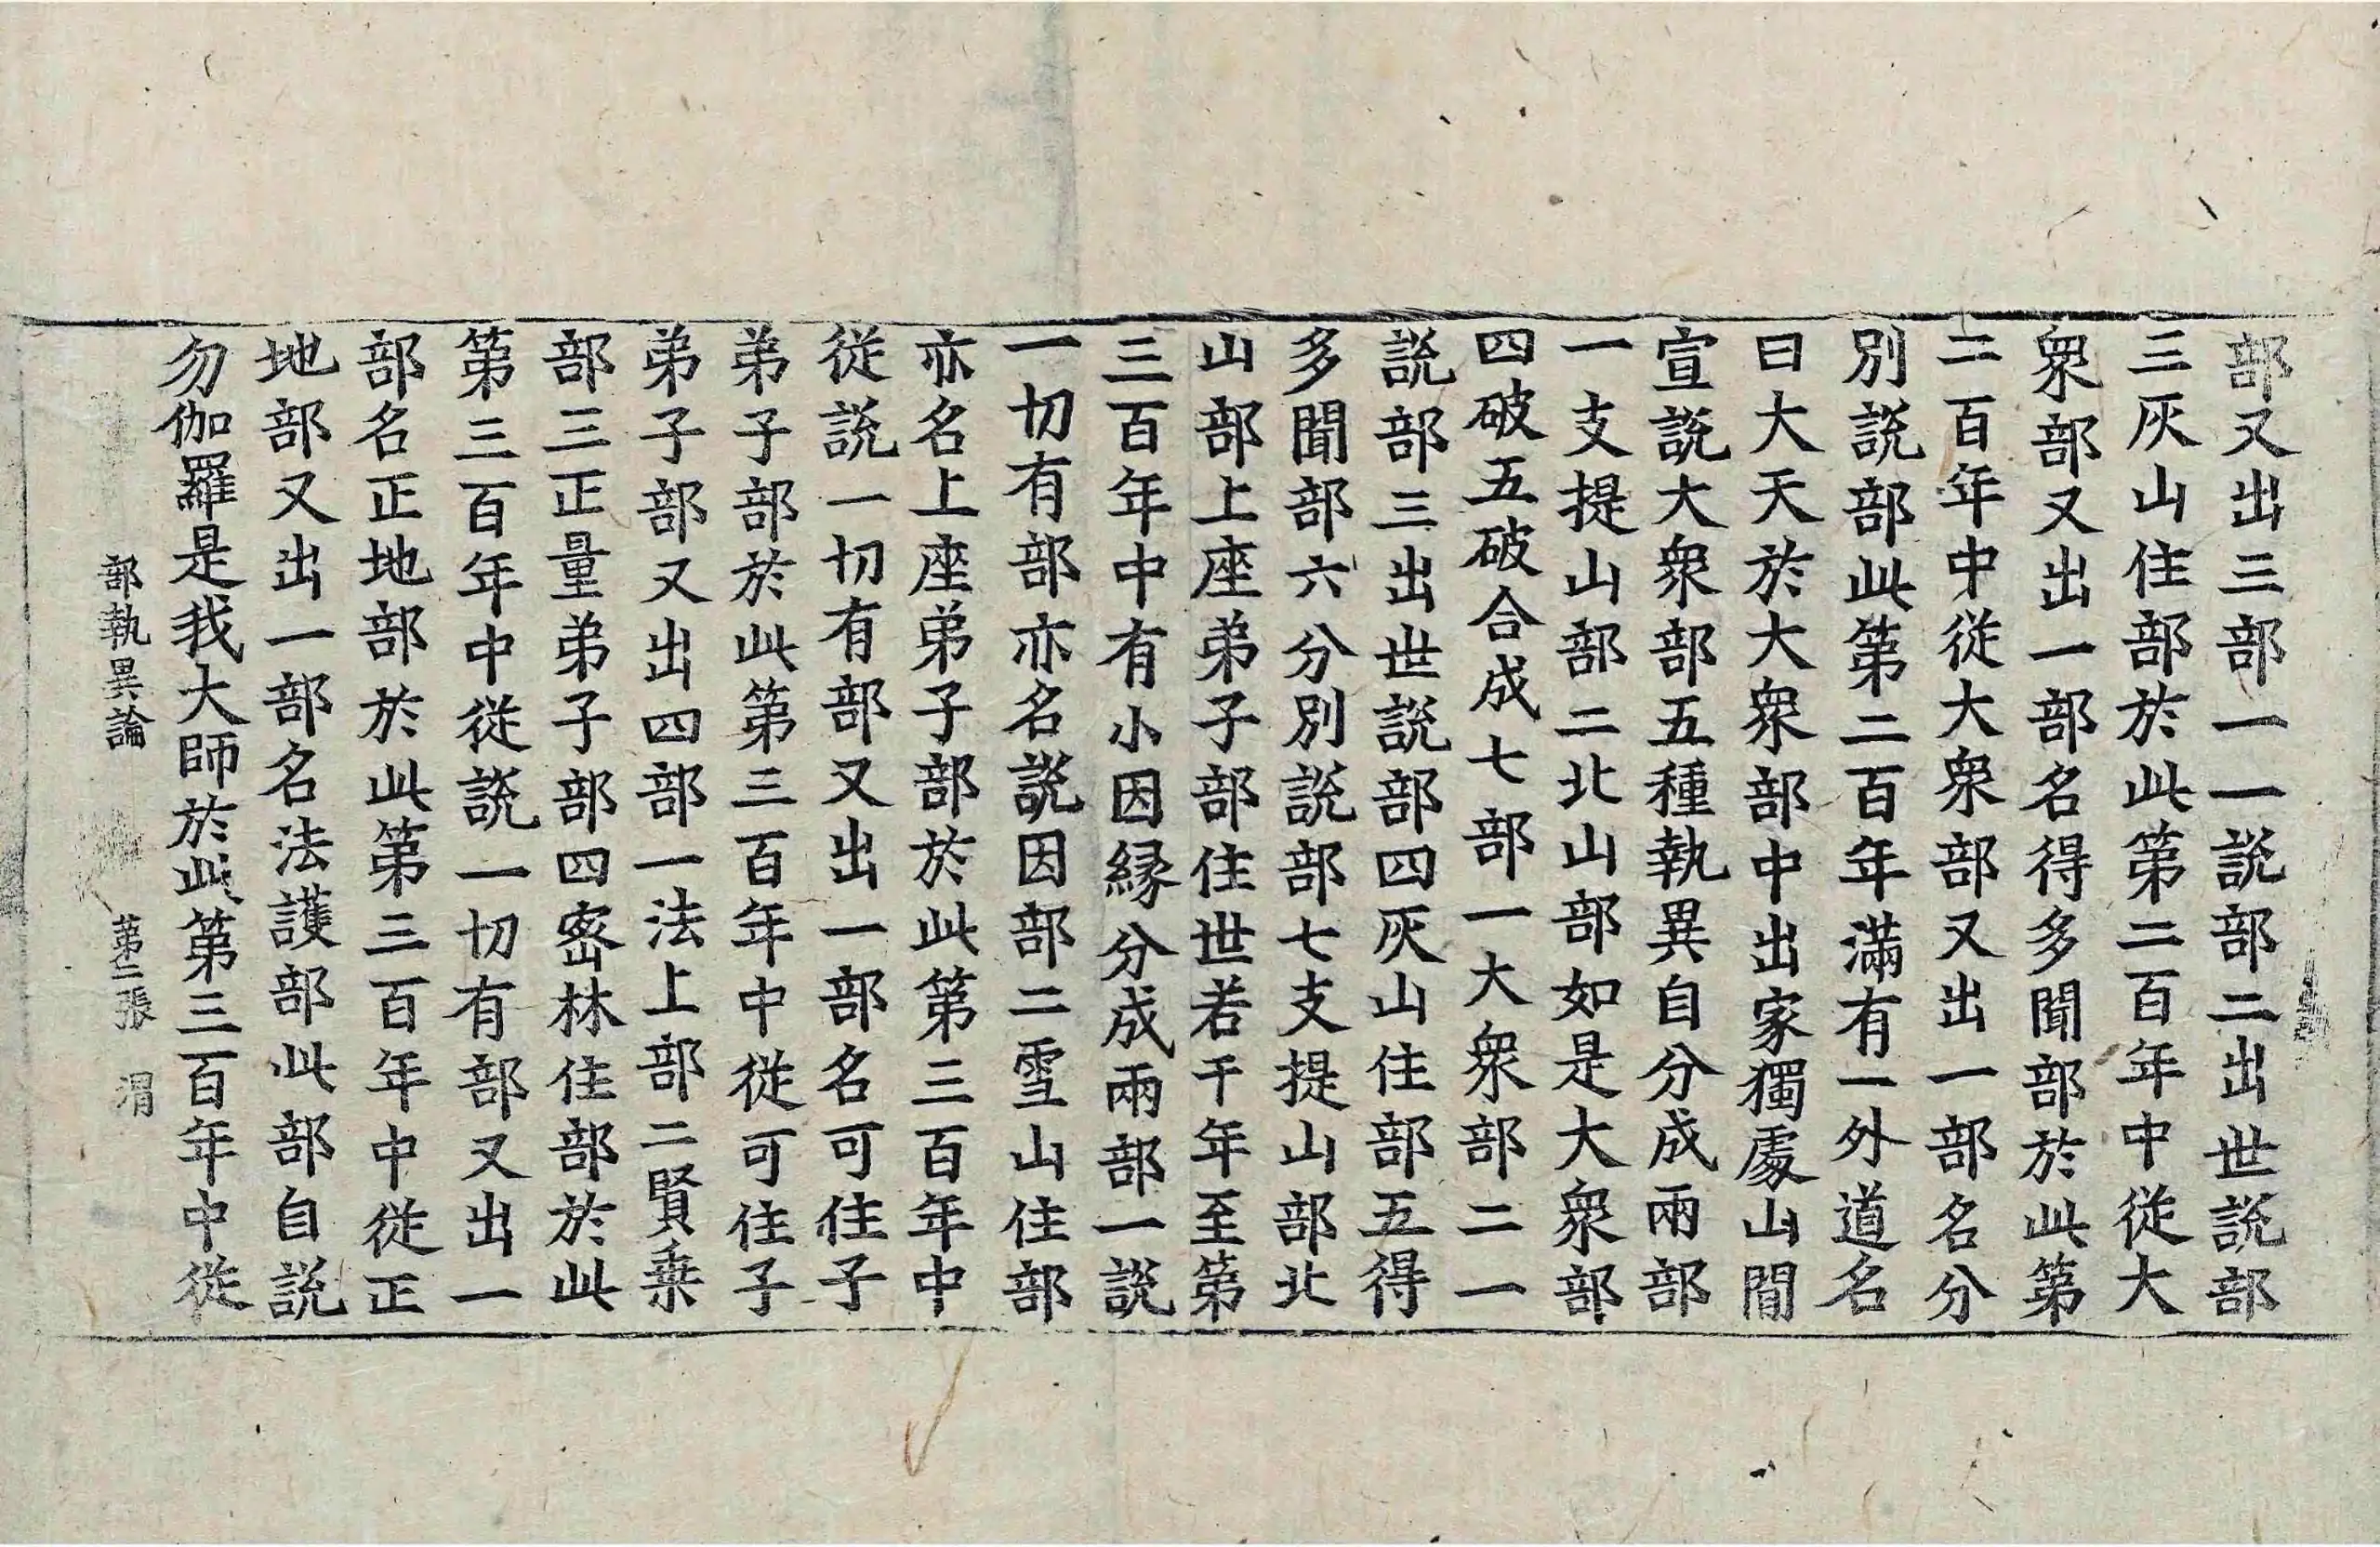 部又出三部一一說部二出世說部
三灰山住部於此第二百年中從大
衆部又出一部名得多聞部於此第
二百年中從大衆部又出一部名分
別說部此第二百年滿有一外道名
曰大天於大衆部中出家獨處山間
宣說大衆部五種執異自分成兩部
一支提山部二北山部如是大衆部
四破五破合成七部一大衆部二一
說部三出世說部四灰山住部五得
多聞部六分別說部七支提山部北
山部上座弟子部住世若干年至第
三百年中有小因緣分成兩部一說
一切有部亦名說因部二雪山住部
亦名上座弟子部於此第三百年中
從說一切有部又出一部名可住子
弟子部於此第三百年中從可住子
弟子部又出四部一法上部二賢乗
部三正量弟子部四密林住部於此
第三百年中從說一切有部又出一
部名正地部於此第三百年中從正
地部又出一部名法護部此部自說
勿伽羅是我大師於此第三百年中從
部執異論 第二張 渭